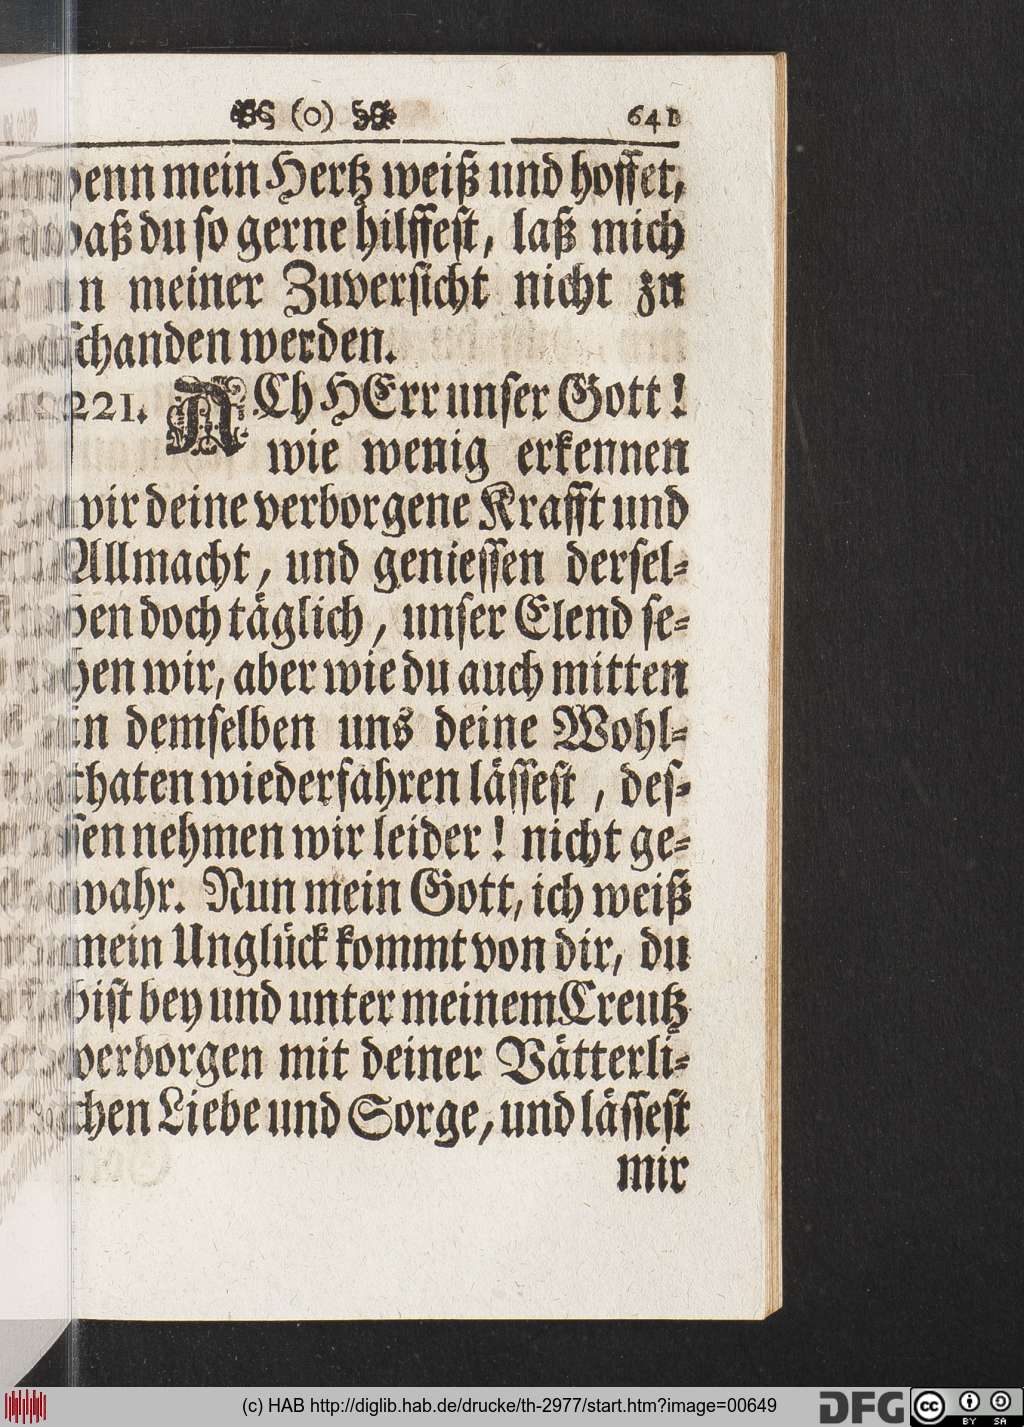 (o) 641
denn mein Hertz weiß und hoffet,
daß du so gerne hilffest, laß mich
in meiner Zuversicht nicht zu
schanden werden.
221. ACh HErr unser Gott!
wie wenig erkennen
wir deine verborgene Krafft und
Allmacht, und geniessen dersel-
ben doch täglich, unser Elend se-
hen wir, aber wie du auch mitten
in demselben uns deine Wohl-
thaten wiederfahren lässest, des-
sen nehmen wir leider! nicht ge-
wahr. Nun mein Gott, ich weiß
mein Unglück kommt von dir, du
bist bey und unter meinem Creutz
verborgen mit deiner Vätterli-
chen Liebe und Sorge, und lässest
mir
(c) HAB http://diglib.hab.de/drucke/th-2977/start.htm?image=00649
DFG
cc BY SA